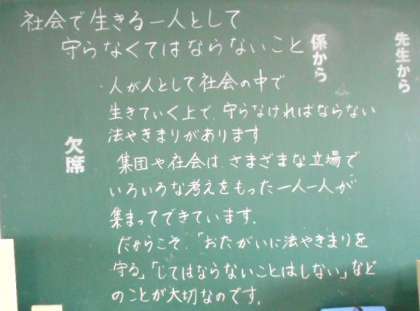 社会で生きる一人として
守らなくてはならないこと
先生から
係から
欠席
・人が人として社会の中で
生きていく上で、守らなければならない
法やきまりがあります
集団や社会は、さまざまな立場で
いろいろな考えをもった一人一人が
集まってできています。
だからこそ、「おたがいに法やきまりを
守る」「してはならないことはしない」など
のことが大切なのです。